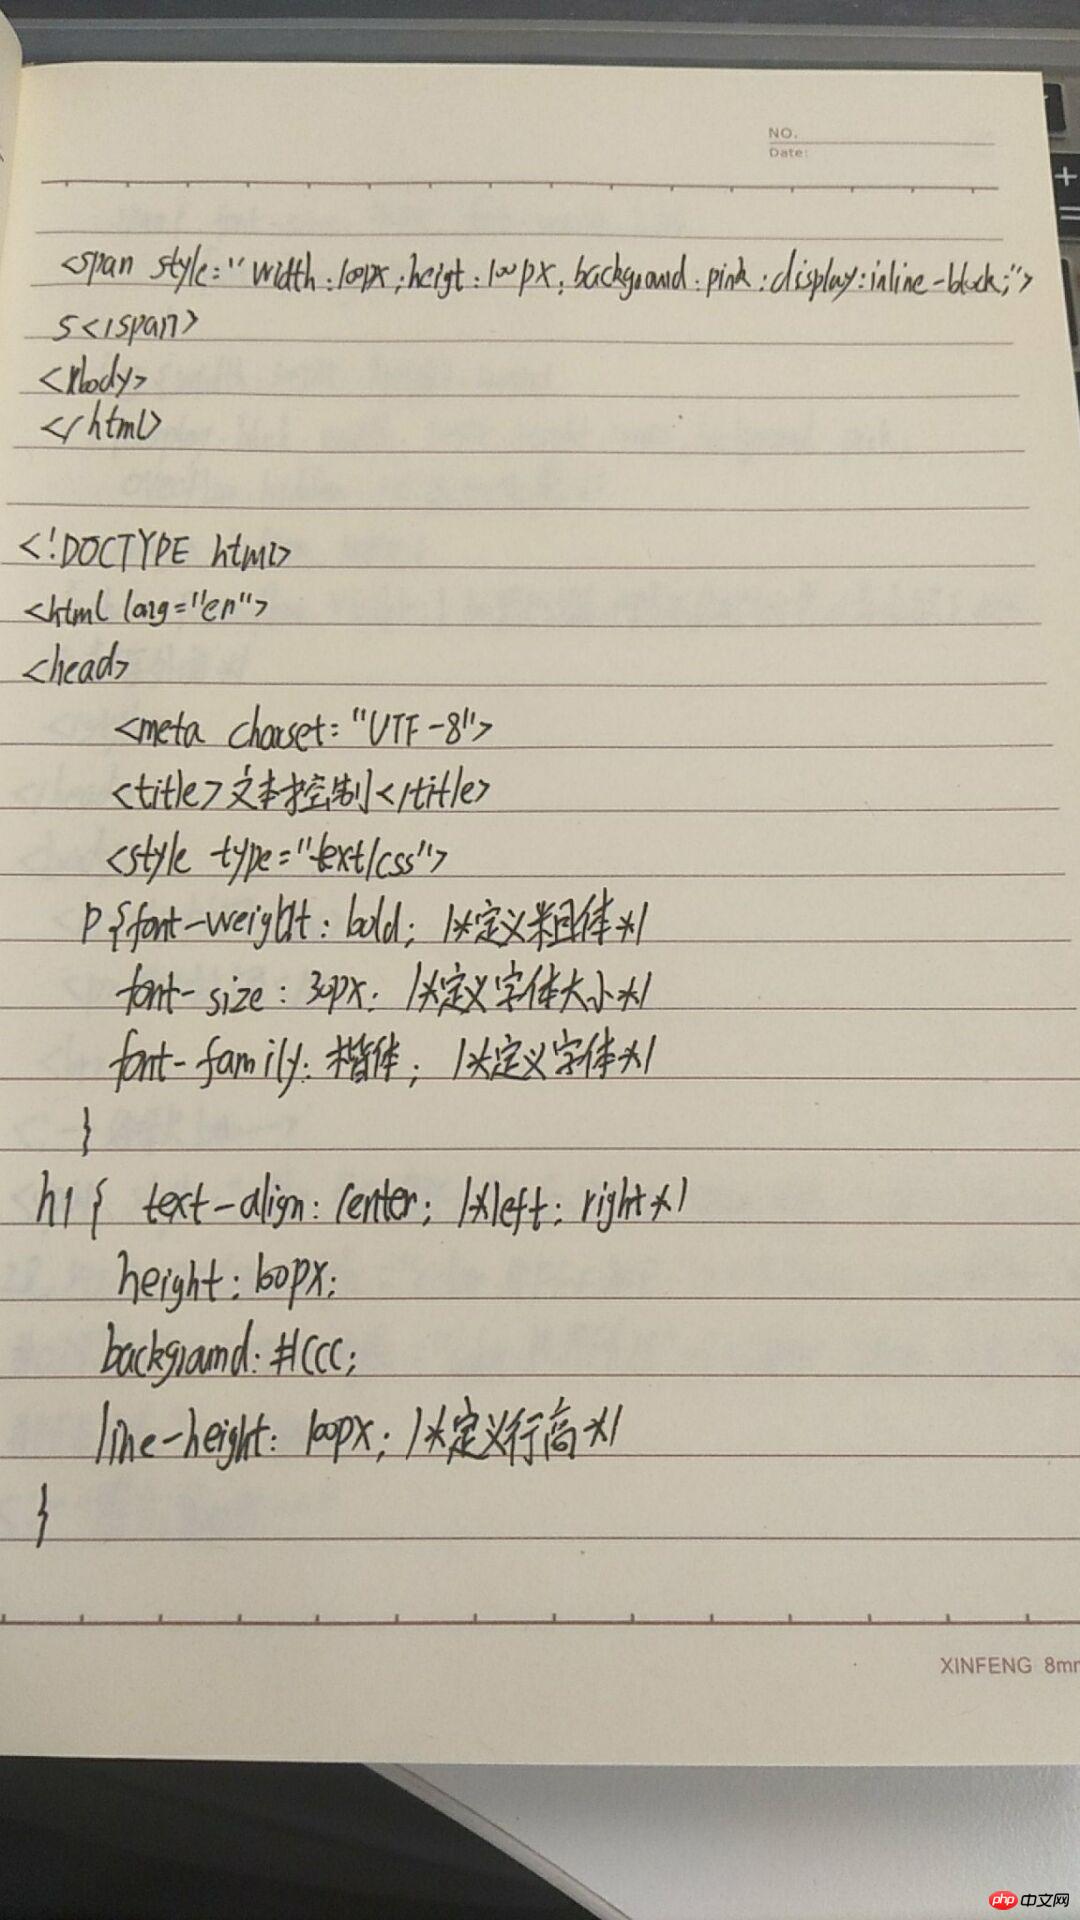 NO.
Date:
<span style="width:100px;heigt:100px;background:pink;display:inline-block;">
s</span>
</body>
</html>
<!DOCTYPE html>
<html lang="en">
<head>
<meta charset="UTF-8">
<title>文本控制</title>
<style type="text/css">
p{font-weight: bold; /*定义粗体*/
font-size: 30px; /*定义字体大小*/
font-family: 楷体; /*定义字体*/
}
h1{ text-align: center; /*left; right*/
height: 60px;
background: #CCC;
line-height: 100px; /*定义行高*/
}
XINFENG 8mm
php 中文网